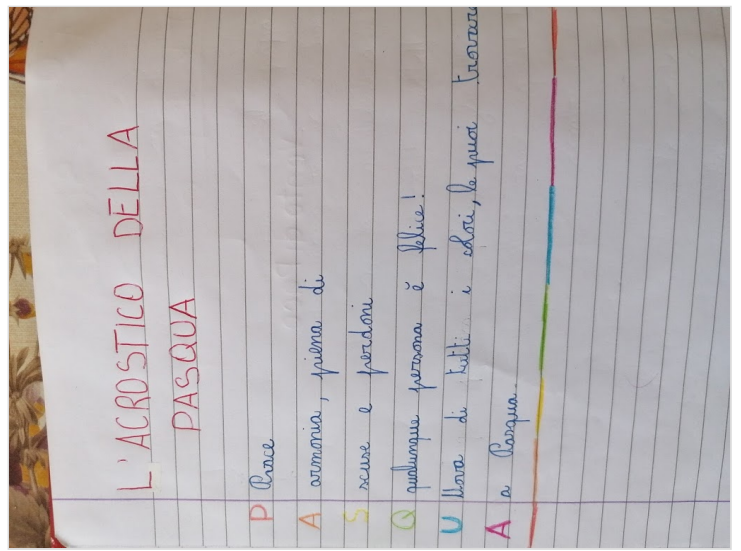 L'ACROSTICO DELLA
PASQUA
P Pace
A armonia, piena di
S scuse e perdoni
Q qualunque persona è felice!
U Uova di tutti i colori, le puoi trovare
A a Pasqua.